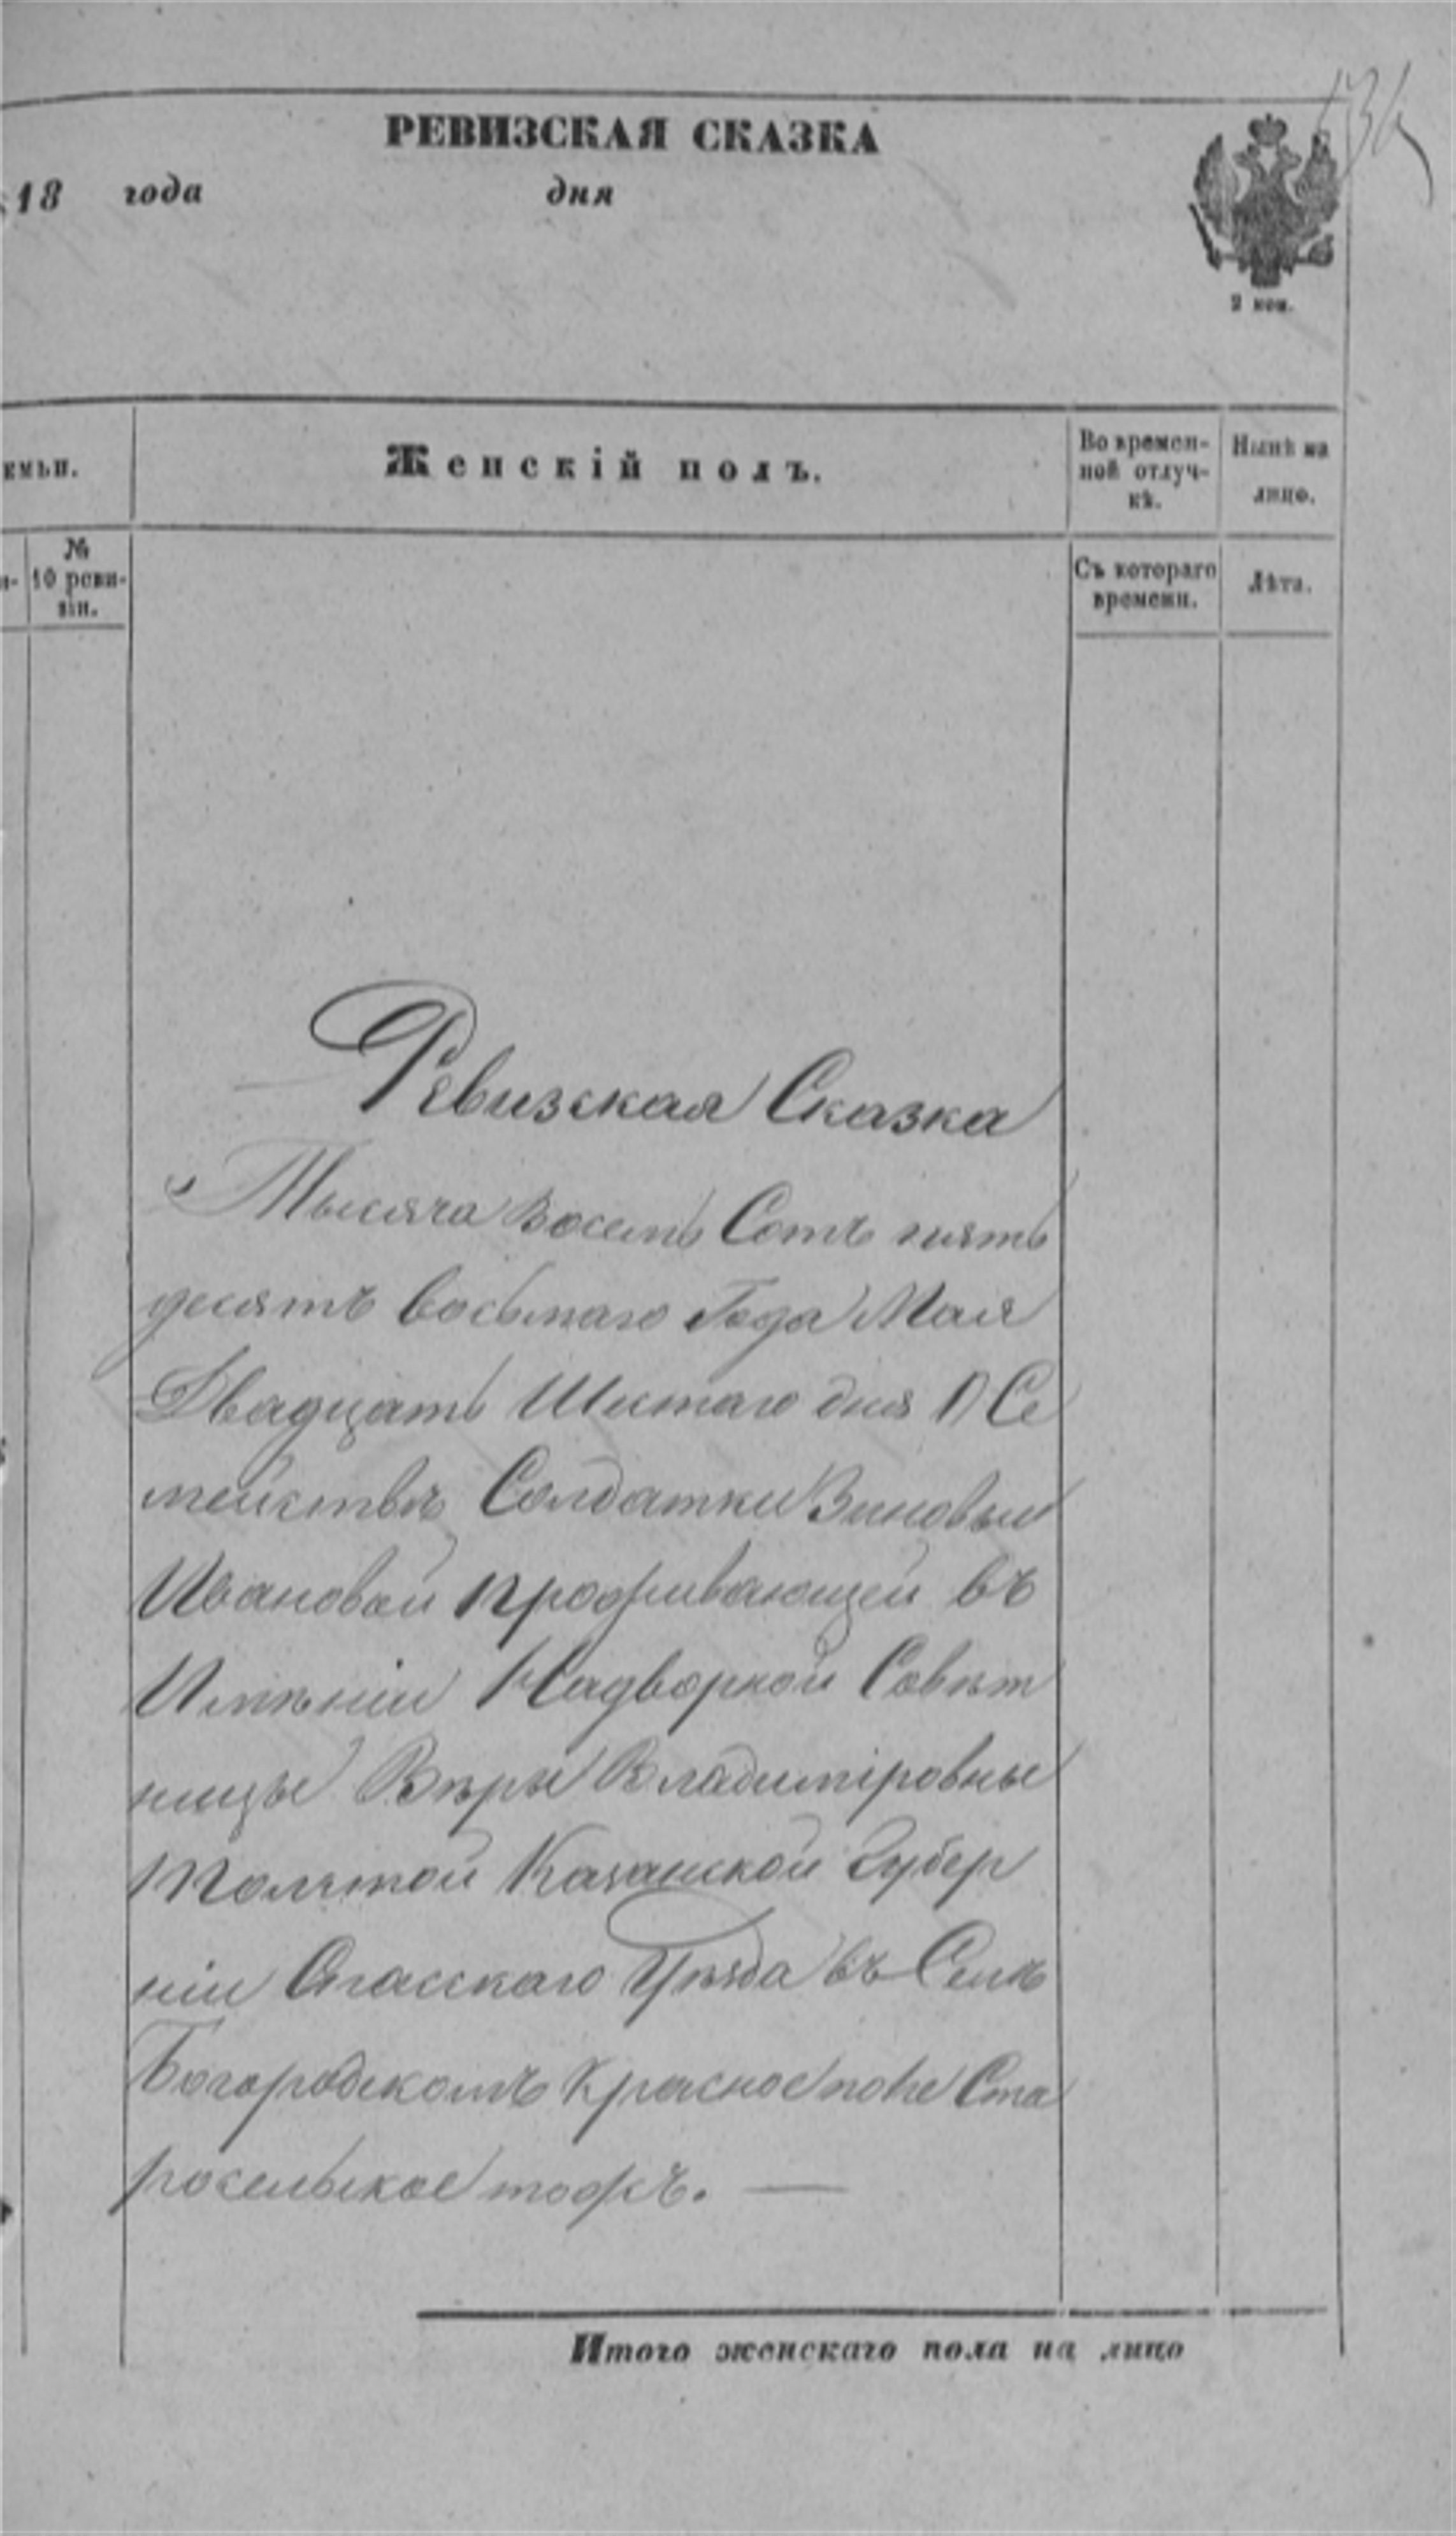 РЕВИЗСКАЯ СКАЗКА
18 года дня
2 коп.
емьи. Женскій полъ. Во времен-ной отлуч-кѣ. Нынѣ на лицо.
№ 10 реви-зіи. Съ котораго времени. Лѣта.
Ревизская Сказка
Тысяча Восемь Сотъ пять
десятъ восьмаго Года Мая
Двадцать Шестаго дня О Се
мействѣ Солдатки Зиновьи
Ивановой проживающей въ
Имѣніи Надворной Совѣт
ницы Вѣры Владиміровны
Толстой Казанской Губер
ніи Спасскаго Уѣзда въ Селѣ
Богородскомъ Красное поле Ста
росельское тожъ. —
Итого женскаго пола на лицо